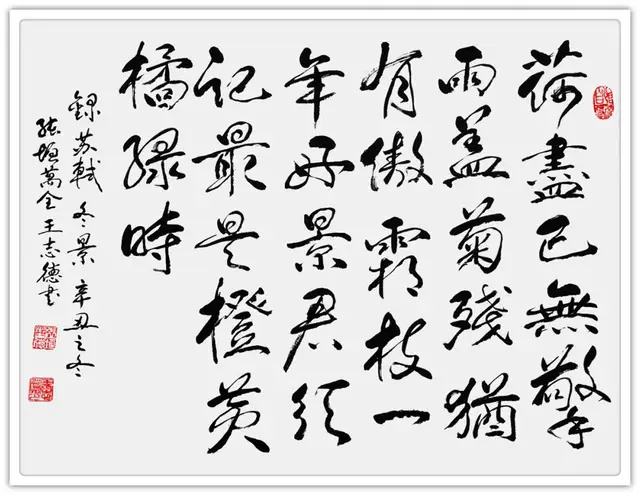 荷盡已無擎
雨蓋菊殘猶
有傲霜枝一
年好景君須
記最是橙黄
橘绿時
録苏軾冬景辛丑之冬
張垣萬全王志德书